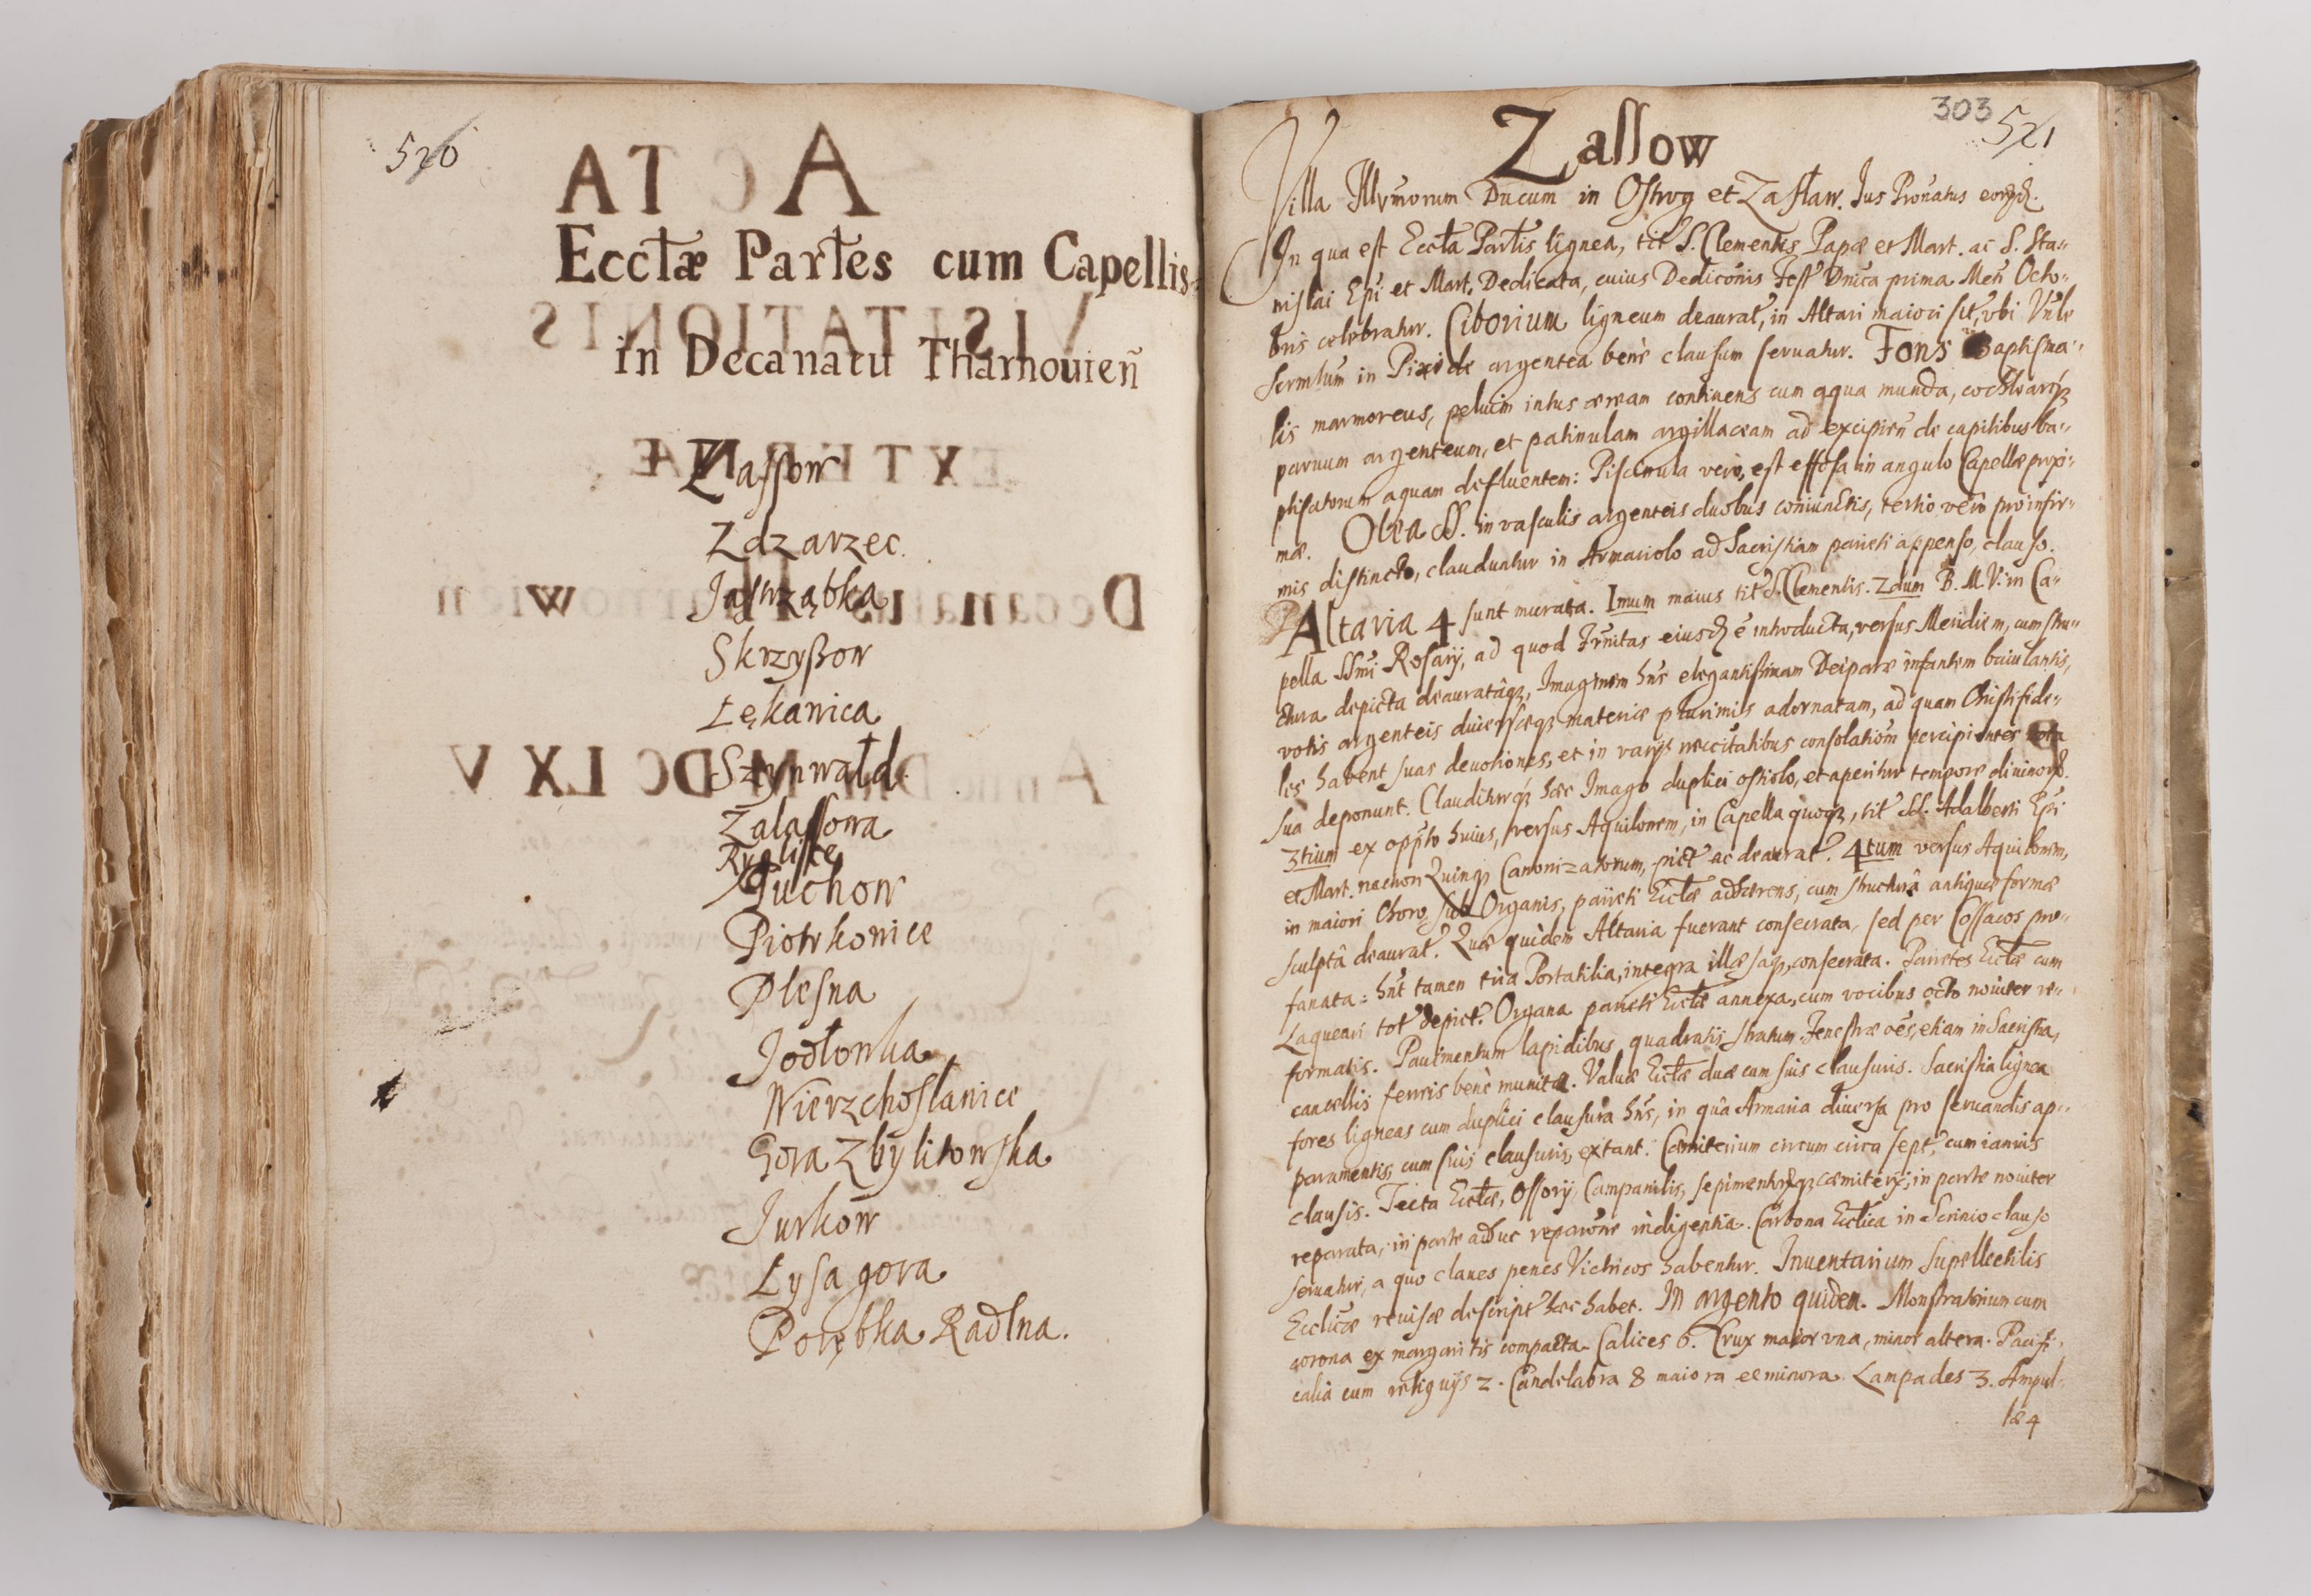 520
Ecctæ Partes cum Capellis
in Decanatu Tharnouien̄
Zassow
Zdzarzec.
Jastrząbka
Skrzyszow
Łękawica
Szynwałd.
Zalassowa
Ryglice
Tuchow
Piotrkowice
Plesna
Jodłowka
Wierzchosławice
Gora Zbylitowska
Jurkow
Łysa gora
Porębka Radlna.
303
521
Zassow
Villa Illvm̃orum Ducum in Ostrog et Zasław. Jus Pron̄atus
In qua est Eccta Partis lignea, tit S. Clementis Papæ et Mart. ac S. Sta-
nislai Ep̃i et Mart. Dedicata, cuius Dedicõnis Fest Dn̄ica prima Men̄ Octo-
bris celebratur. Ciborium ligneum deaurat, in Altari maiori sit, vbi Vn̄le
Scrm̃tum in Pixide argentea benè clausum seruatur. Fons Baptisma-
lis marmoreus, peluim intus æream continens cum aqua munda,
paruum argenteum, et patinulam argillaceam ad excipien̄ de capitibus ba-
ptisatorum aquam defluentem: Piscinula verò, est effosa in angulo Capellæ proxi-
mæ. Olea SS. in vasculis argenteis duobus coniunctis, tertio verò pro infir-
mis distincto, clauduntur in Armariolo ad Sacristiam parieti appenso, clauso.
Altaria 4 sunt murata. Imum maius tit S. Clementis. Zdum B. M. V. in Ca-
pella SSmi Rosarij, ad quod introducta, versus Meridiem, cum stru-
ctura depicta deauratâqꝫ, Imaginem hñs elegantissimam Deiparæ infantem baiulantis,
votis argenteis diuersæqꝫ materiæ plurimis adornatam, ad quam Christi fide-
les habent suas deuotiones, et in varijs consolatiom̃ percipientes vota
sua deponunt. Clauditurqꝫ hæc Imago duplici ostiolo, et aperitur tempore
3tium ex opp̃to huius, versus Aquilonem, in Capella quoqꝫ, tit SS. Adalberti Ep̃i
et Mart. necnon Quinqꝫ Canonizatorum, pict ac deaurat. 4tum versus Aquilonem,
in maiori Choro, sub Organis, parieti Ecctæ adhærens, cum structurâ antiquæ formæ
sculptâ deaurat. Quæ quidem Altaria fuerant consecrata, sed per Cossacos pro-
fanata: hñt tamen tria Portatilia, integra illæsaqꝫ, consecrata. Parietes Ecctæ cum
Laqueari tot depict. Organa parieti Ecctæ annexa, cum vocibus octo nouiter re-
formatis. Pauimentum lapidibus quadratis stratum. Fenestræ oẽs, etiam in Sacristia,
cancellis ferreis benè munitæ. Valuæ Ecctæ duæ cum suis clausuris. Sacristia lignea
fores ligneas cum duplici clausura hñs, in quâ Armaria diuersa pro seruandis ap-
paramentis, cum suis clausuris, extant. Cæmiterium circum circa sept, cum ianuis
clausis. Tecta Ecctæ, Ossorij, Campanilis, cæmiterij, in parte nouiter
reparata, in parte adhuc reparõne indigentia. Carbona Ecctica in Scrinio clauso
seruatur, a quo claues penes Victricos habentur. Inuentarium supellectilis
Ecclicæ reuisæ descript hæc habet. In argento quidem. Monstratorium cum
corona ex margaritis compacta. Calices 6. Crux maior vna, minor altera. Pacifi-
calia cum reliquijs 2. Candelabra 8 maiora et minora. Lampades 3. Ampul-
læ 4